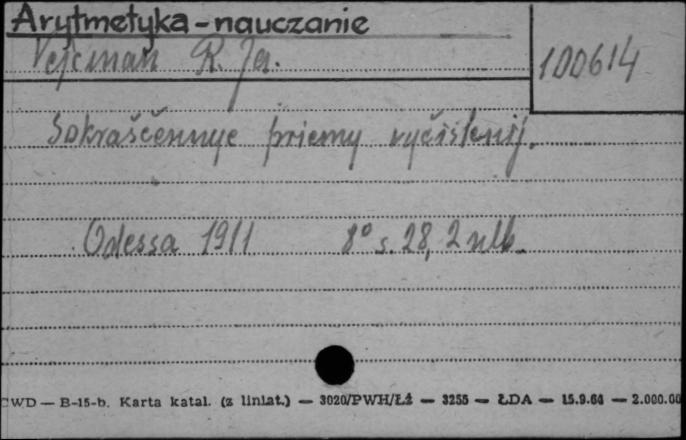 Arytmetyka - nauczanie
Vejcman R. Ja.
100614
Sokraščennye priemy vyčislenij.
Odessa 1911 8° s. 28, 2 nlb.
CWD — B-15-b. Karta katal. (z liniat.) — 3020/PWH/Łź — 3255 — ŁDA — 15.9.64 — 2.000.00